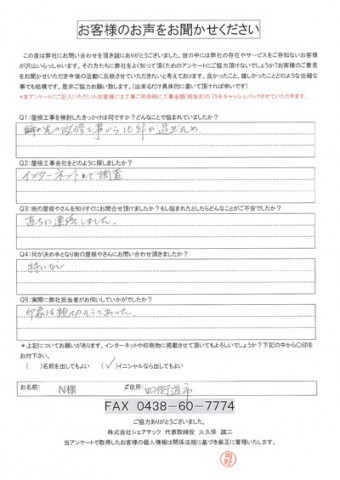 お客様のお声をお聞かせください
この度は弊社にお問い合わせを頂き誠にありがとうございました。世の中には弊社の存在やサービスをご存知ないお客様
が沢山いらっしゃいます。その方たちに弊社をよく知って頂くためのアンケートにご協力頂けないでしょうか?お客様のご意見
をお聞かせいただき今後の活動に反映させていただきたいと考えております。良かったこと、嬉しかったことどのような些細な
事でも結構です。是非ご協力お願い致します。(出来るだけ具体的に書いて頂ければ幸いです)
Q1:屋根工事を検討したきっかけは何ですか?どんなことで悩まれていましたか?
の改修工事から10年が過ぎため
Q2:屋根工事会社をどのように探しましたか?
インターネットにて調査
Q3:街の屋根やさんを知りすぐにお問合せ頂けましたか?もし悩まれたとしたらどんなことがご不安でしたか?
直ちに連絡しました。
Q4:何が決め手となり街の屋根やさんにお問い合わせ頂きましたか?
特になし
Q5:実際に弊社担当者がお伺いしていかがでしたか?
印象は親切そうであった。
*上記についてお願いがあります。インターネットや印刷物に掲載させて頂いてもよろしいでしょうか?下記の中から○印をお付下さい。
( )名前を出してもよい (✓)イニシャルなら出してもよい
お名前: N様 ご住所: 四街道市
FAX 0438-60-7774
ご協力ありがとうございました。
株式会社シェアテック 代表取締役 大久保 誠二
当アンケートで取得したお客様の個人情報は関係法規に基づき厳正に管理いたします。